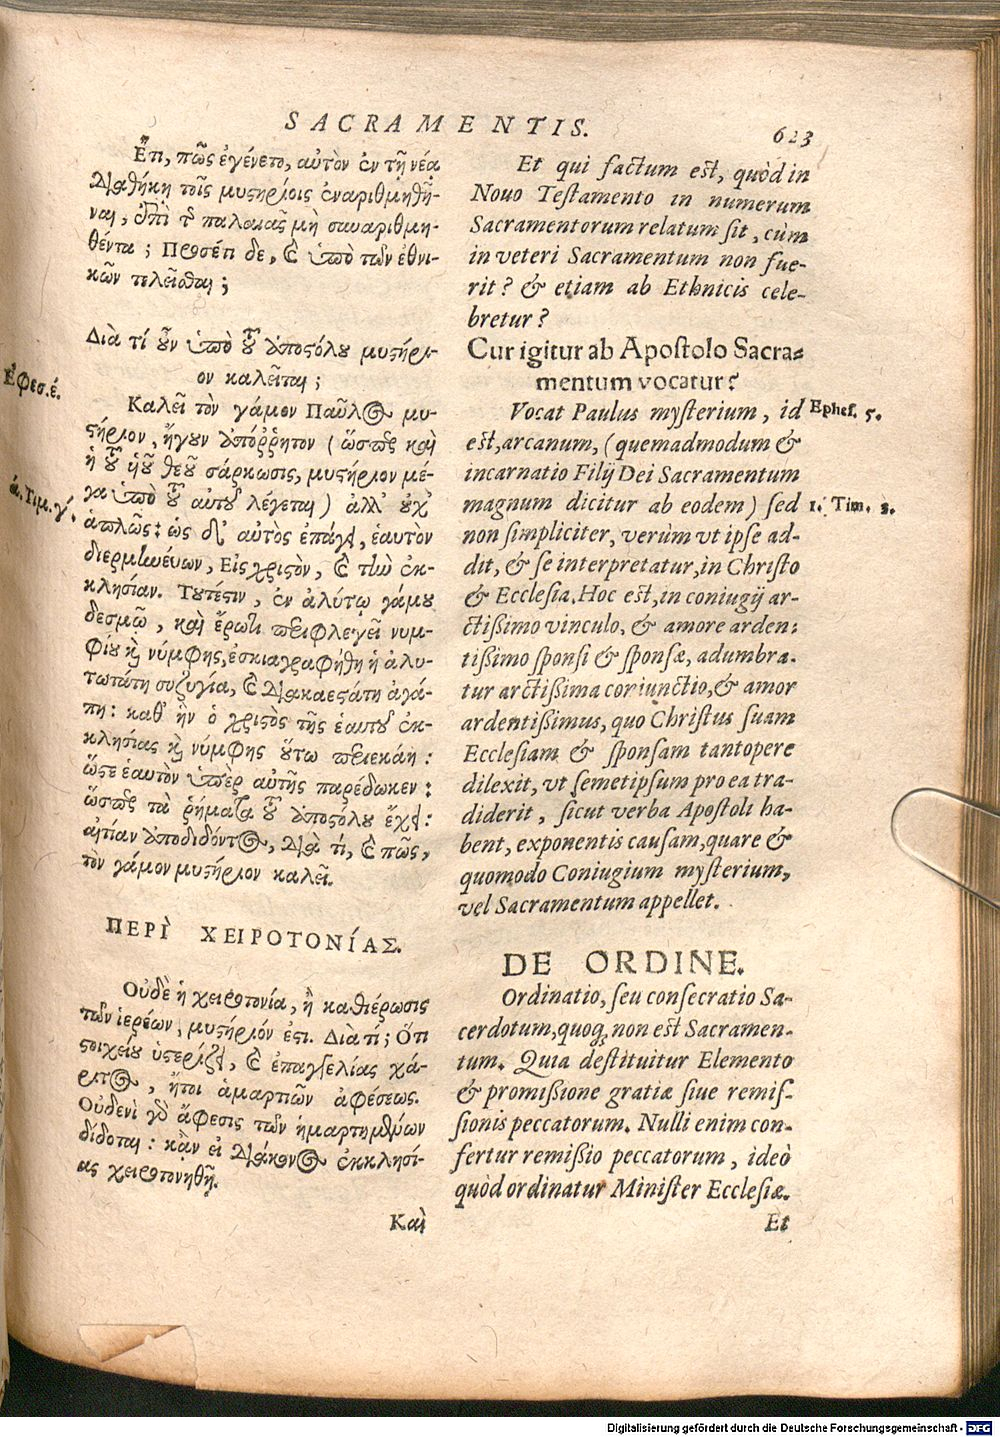 SACRAMENTIS.
623
Ἔτι, πῶς ἐγένετο, αὐτὸν ἐν τῇ νέᾳ
Διαθήκῃ τοῖς μυστηρίοις ἐναριθμηθῆ-
ναι, ἐπὶ τῆς παλαιᾶς μὴ συναριθμη-
θέντα; Προσέπι δε, καὶ ὑπὸ τῶν ἐθνι-
κῶν τελεῖσθαι;
Διὰ τί οὖν ὑπὸ τοῦ ἀποστόλου μυστήρι-
ον καλεῖται;
Ἐφεσ. έ.
Καλεῖ τὸν γάμον Παῦλος μυ-
στήριον, ἤγουν ἀπόῤῥητον (ὥσπερ καὶ
ἡ τοῦ ὑοῦ θεοῦ σάρκωσις, μυστήριον μέ-
ά. Τιμ. γ΄.
γα ὑπὸ τοῦ αὐτοῦ λέγεται) ἀλλ' οὐχ
ἁπλῶς: ὡς δ' αὐτὸς ἐπάγει, ἑαυτὸν
διερμηνεύων, Εἰς χριστὸν, καὶ τὴν ἐκ-
κλησίαν. Τουτέστιν, ἐν ἀλύτῳ γάμου
δεσμῷ, καὶ ἔρωτι περιφλεγεῖ νυμ-
φίου καὶ νύμφης, ἐσκιαγραφήθη ἡ ἀλυ-
τωτάτη συζυγία, καὶ διακαεστάτη ἀγά-
πη: καθ' ἣν ὁ χριστὸς τῆς ἑαυτοῦ ἐκ-
κλησίας καὶ νύμφης οὕτω περιεκάη:
ὥστε ἑαυτὸν ὑπὲρ αὐτῆς παρέδωκεν:
ὥσπερ τὰ ῥήματα τοῦ ἀποστόλου ἔχει:
αἰτίαν ἀποδιδόντος, διὰ τί, καὶ πῶς,
τὸν γάμον μυστήριον καλεῖ.
ΠΕΡῚ ΧΕΙΡΟΤΟΝΊΑΣ.
Οὐδὲ ἡ χειροτονία, ἢ καθιέρωσις
τῶν ἱερέων, μυστήριόν ἐστι. Διὰ τί; Ὅτι
στοιχείου ὑστερίζει, καὶ ἐπαγγελίας χά-
ριτος, ἤτοι ἁμαρτιῶν ἀφέσεως.
Οὐδενὶ γὰρ ἄφεσις τῶν ἡμαρτημένων
δίδοται: κἂν εἰ διάκονος ἐκκλησί-
ας χειροτονηθῇ.
Καὶ
Et qui factum est, quòd in
Nouo Testamento in numerum
Sacramentorum relatum sit, cùm
in veteri Sacramentum non fue-
rit? & etiam ab Ethnicis cele-
bretur?
Cur igitur ab Apostolo Sacra-
mentum vocatur?
Vocat Paulus mysterium, id
Ephes. 5.
est, arcanum, (quemadmodum &
incarnatio Filij Dei Sacramentum
magnum dicitur ab eodem) sed
1. Tim. 3.
non simpliciter, verùm vt ipse ad-
dit, & se interpretatur, in Christo
& Ecclesia. Hoc est, in coniugij ar-
ctißimo vinculo, & amore arden-
tißimo sponsi & sponsæ, adumbra-
tur arctißima coniunctio, & amor
ardentißimus, quo Christus suam
Ecclesiam & sponsam tantopere
dilexit, vt semetipsum pro ea tra-
diderit, sicut verba Apostoli ha-
bent, exponentis causam, quare &
quomodo Coniugium mysterium,
vel Sacramentum appellet.
DE ORDINE.
Ordinatio, seu consecratio Sa-
cerdotum, quoq; non est Sacramen-
tum. Quia destituitur Elemento
& promißione gratiæ siue remis-
sionis peccatorum. Nulli enim con-
fertur remißio peccatorum, ideò
quòd ordinatur Minister Ecclesiæ.
Et
Digitalisierung gefördert durch die Deutsche Forschungsgemeinschaft - DFG